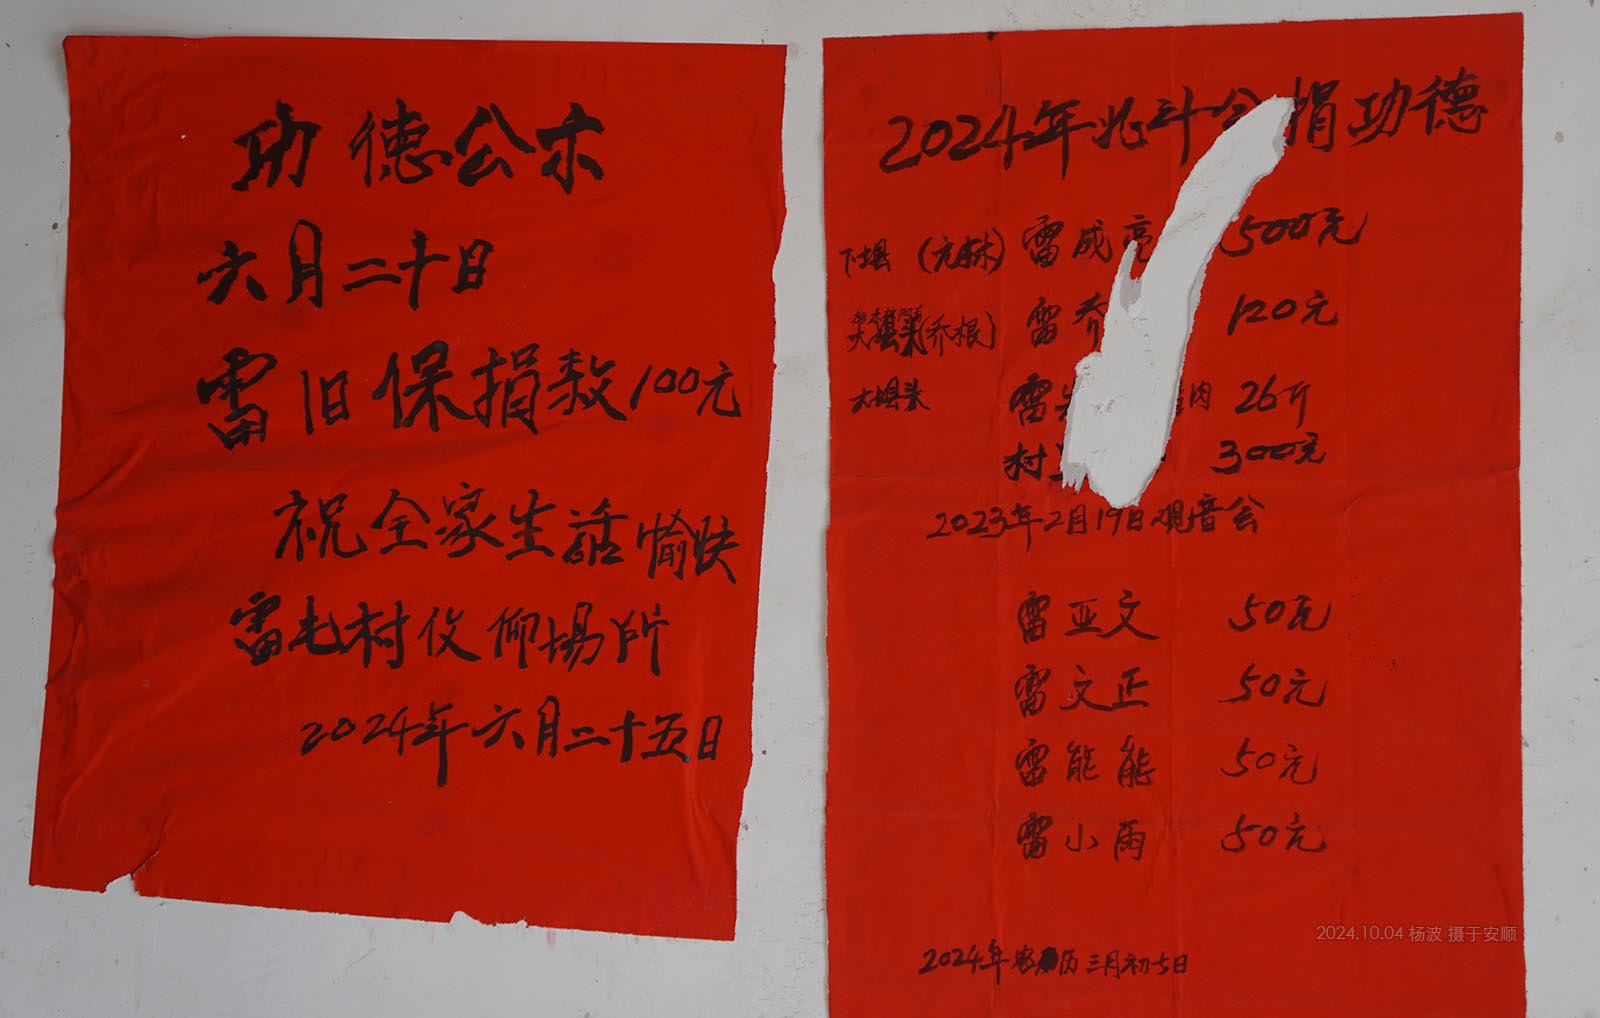 功德公示
六月二十日
雷旧保捐款100元
祝全家生活愉快
雷屯村仪仰場所
2024年六月二十五日
2024年北斗会捐功德
下坝 (元林) 雷成亮 500元
大坝头(乔根) 雷乔 120元
大坝头 雷 肉 26斤
村 300元
2023年2月19日观音会
雷亚文 50元
雷文正 50元
雷能能 50元
雷小雨 50元
2024年农历三月初七日
2024.10.04 杨波 摄于安顺